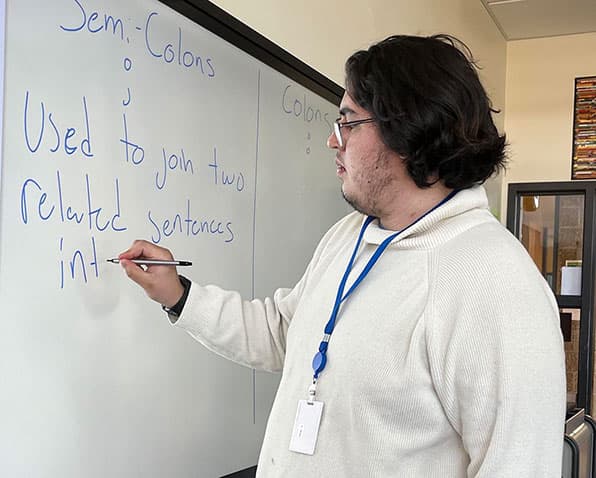 Semi-Colons
;
Used to join two
related sentences
int
Colons
: